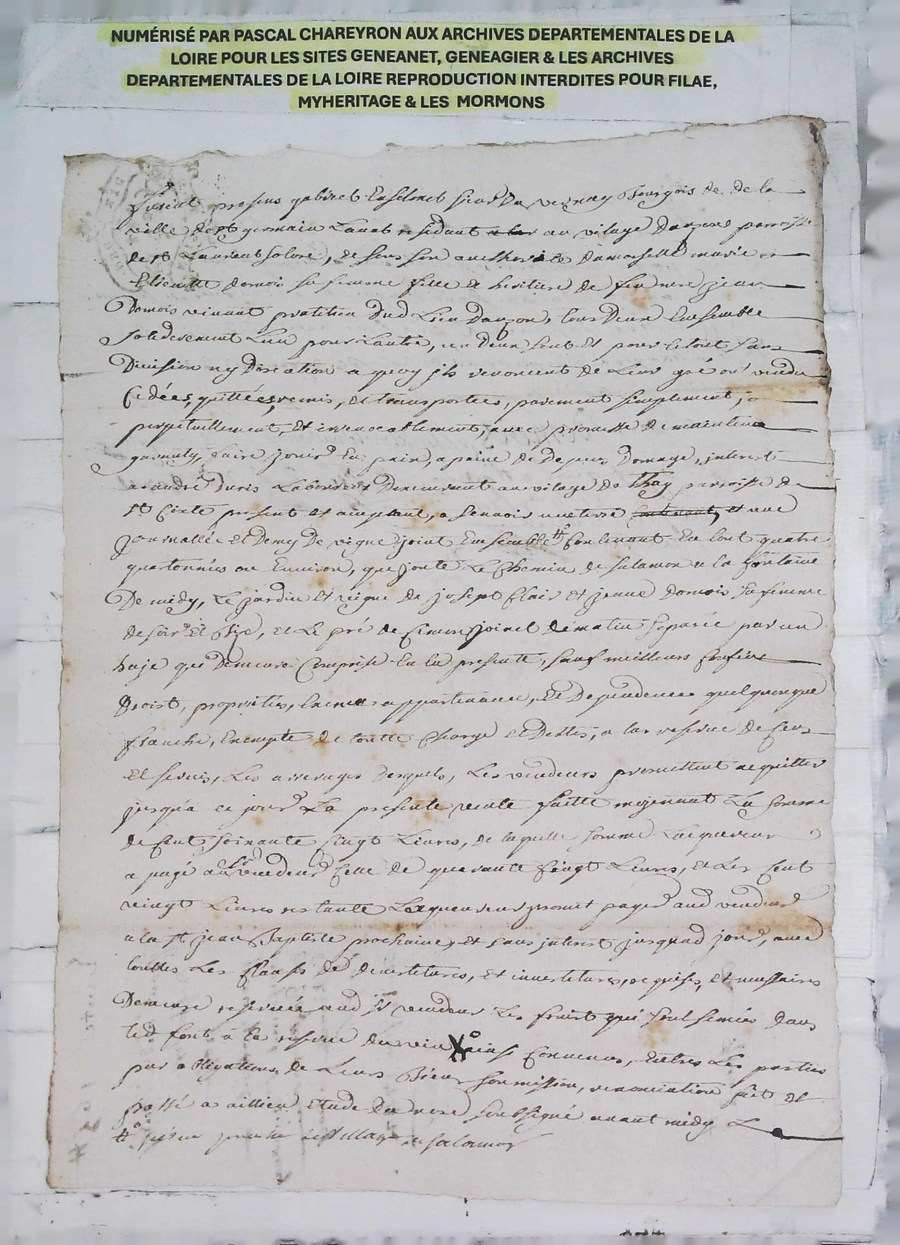 NUMÉRISÉ PAR PASCAL CHAREYRON AUX ARCHIVES DEPARTEMENTALES DE LA
LOIRE POUR LES SITES GENEANET, GENEAGIER & LES ARCHIVES
DEPARTEMENTALES DE LA LOIRE REPRODUCTION INTERDITES POUR FILAE,
MYHERITAGE & LES MORMONS
gabriel sieur Du vernay Bourgois de de la
ville de st germain Laval residant au village parroisse
de st Laurent Solore, et sous son authorité Damoiselle marie
Domois sa femme fille et heritiere de feu jean
Domois vivant praticien Dud Lieu tous Deux Ensemble
soliderement L'un pour L'autre, un Deux seul Et pour Le tout sans
Division ny Discution a quoy ils renoncent de Leurs gré ont vendu
Cedées, quittées, remis, et transportées, purement simplement,
perpetuellement, et irrevocablement, avec promesse de maintenir
faire jouir En paix, a peine de Depens Domage, interest
a andré Laboureur Demeurant au vilage de parroisse de
st Cixte present et aceptant, a sçavoir une terre et une
journallée et Demy De vigne joint Ensemble Contenant En tout quatre
quartonnées ou Environ, que joute Le Chemin de Salamon a la fontaine
De midy, Le jardin et vigne de joseph Clair et jeanne domois sa femme
de soir et Bize, et Le pré de matin separée par un
haje qui Demeure Comprise En la presente, sauf meilleurs Confins
Droist, proprietés, Entrées appartenances, Et Dependences quelquonque
franche, Exempte de toutte Charge et Dettes, a la reserve de Cens
Et servis, Les arrerages Desquels, Les vendeurs promettent acquitter
jusqu'a ce jour La presente vente faitte moyennant La somme
de Cent soixante Cinqt Livres, de laquelle somme Lacquereur
a payé Celle de quarante Cinqt Livres, et Les Cent
vingt Livres restante Lacquereur promet payer aud vendeurs
a la st jean Baptiste prochaine, et sans interest jusquad jour, avec
touttes Les Clauses de devestitures, et investitures, requises, et nessaires
Demeure reservée aud vendeurs Les fruits qui sont semées Dans
led font a la reserve du vin ainsi Convenus, Entres Les parties
par obligations de Leurs Biens soumission, renonciation fait et
passé a aillieu Etude Du nore soubsigné avant midy Le
village de salamon